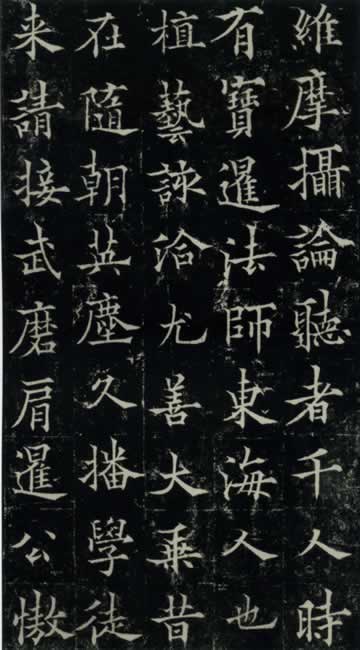 維摩攝論聽者千人時
有寶暹法師東海人也
植藝該洽尤善大乘昔
在隨朝英塵久播學徒
来請接武磨肩暹公慠